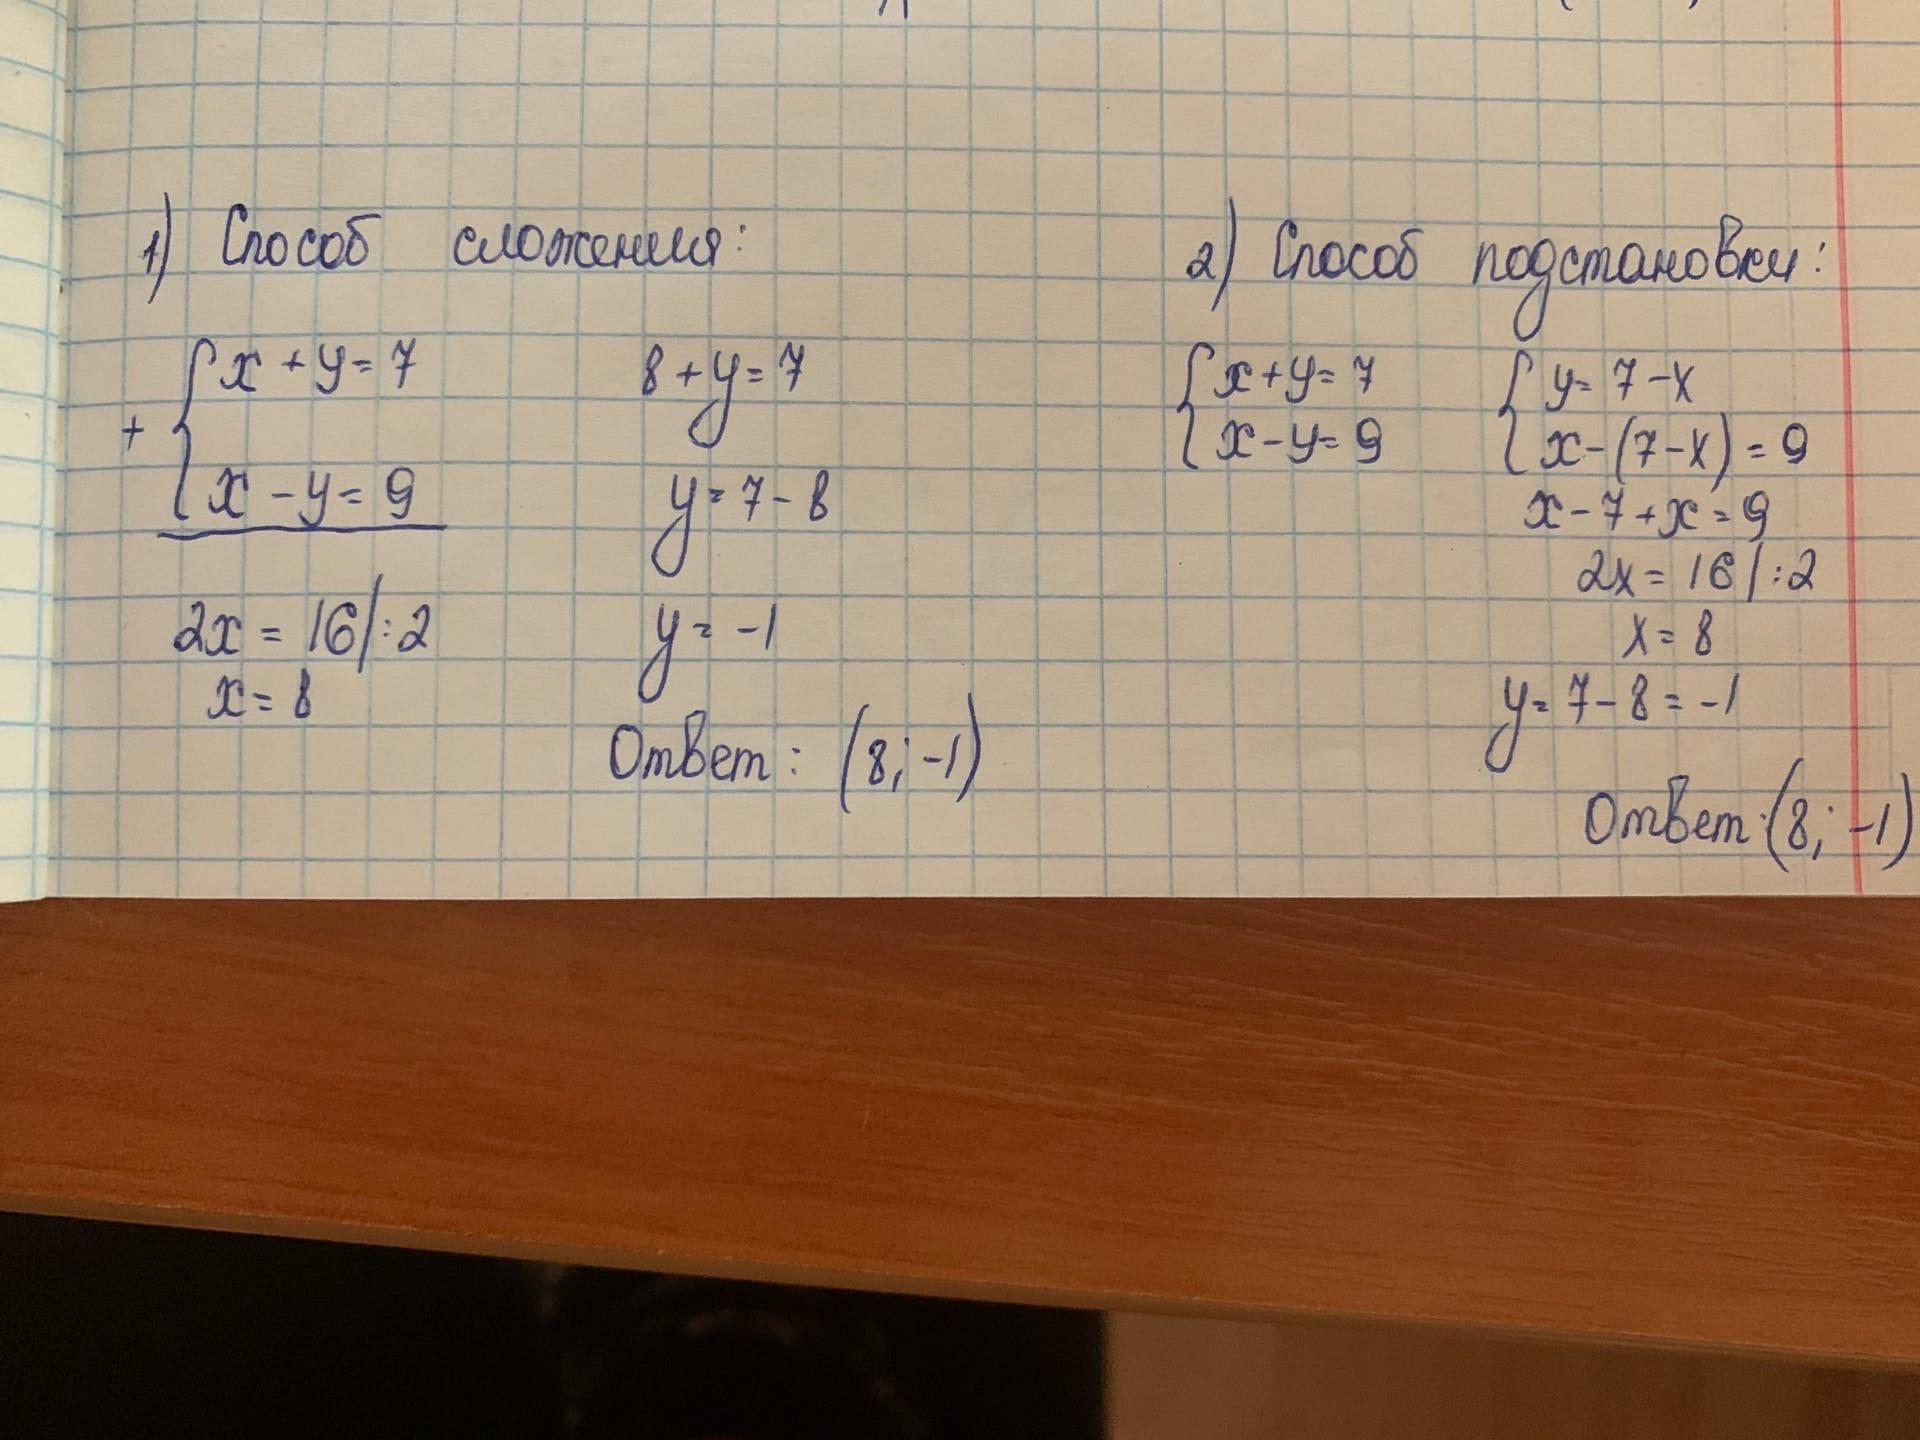 1) Способ сложения:
+ { x + y = 7
x - y = 9
2x = 16 | : 2
x = 8
8 + y = 7
y = 7 - 8
y = -1
Ответ: (8; -1)
2) Способ подстановки:
{ x + y = 7
x - y = 9
{ y = 7 - x
x - (7 - x) = 9
x - 7 + x = 9
2x = 16 | : 2
x = 8
y = 7 - 8 = -1
Ответ: (8; -1)